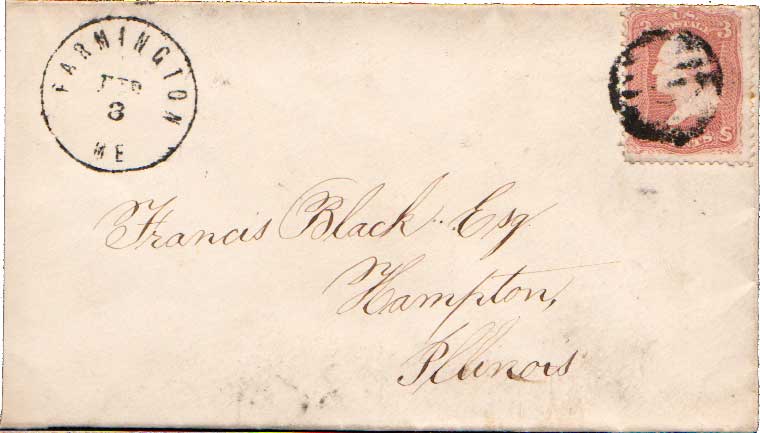 FARMINGTON
FEB
3
ME
3 U.S. 3
POSTAGE
Francis Black Esq
Hampton,
Illinois